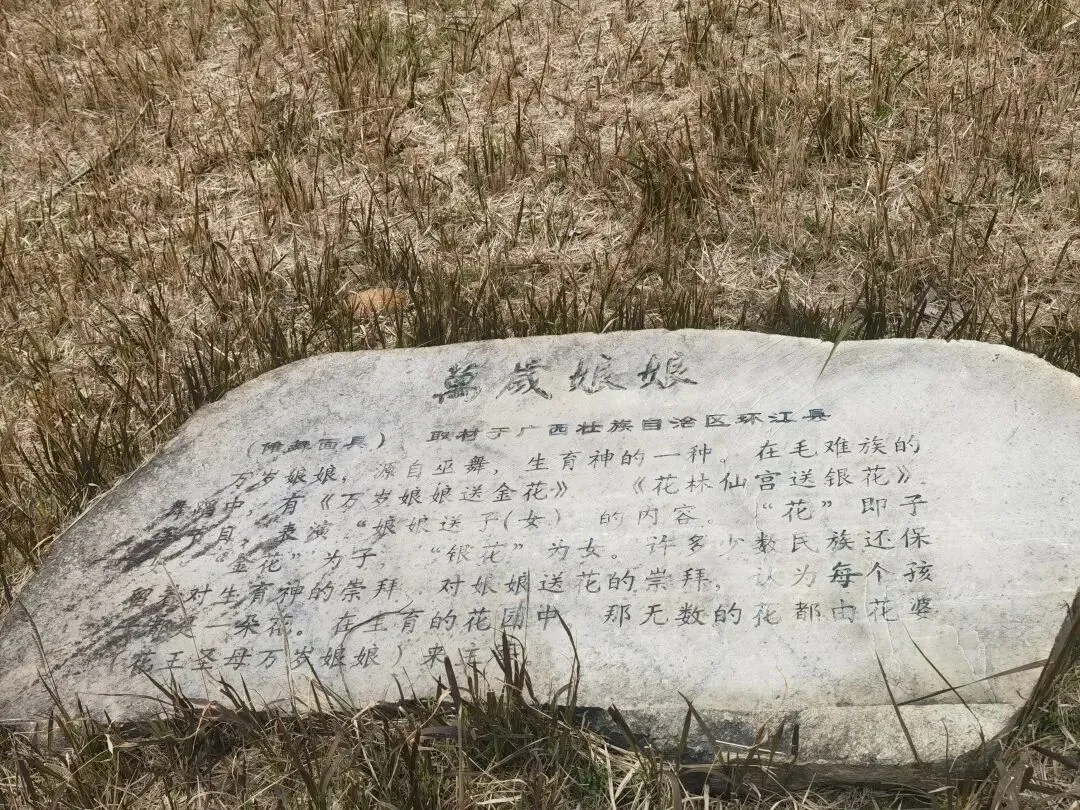 萬歲娘娘
(傩舞面具) 取材于广西壮族自治区环江县
万岁娘娘,源自巫舞,生育神的一种。在毛难族的
舞蹈中,有《万岁娘娘送金花》 《花林仙宫送银花》
等节目,表演“娘娘送子(女)的内容。“花”即子
“金花”为子,“银花”为女。许多少数民族还保
留着对生育神的崇拜,对娘娘送花的崇拜,认为每个孩
都是一朵花。在生育的花园中,那无数的花都由花婆
(花王圣母万岁娘娘)来